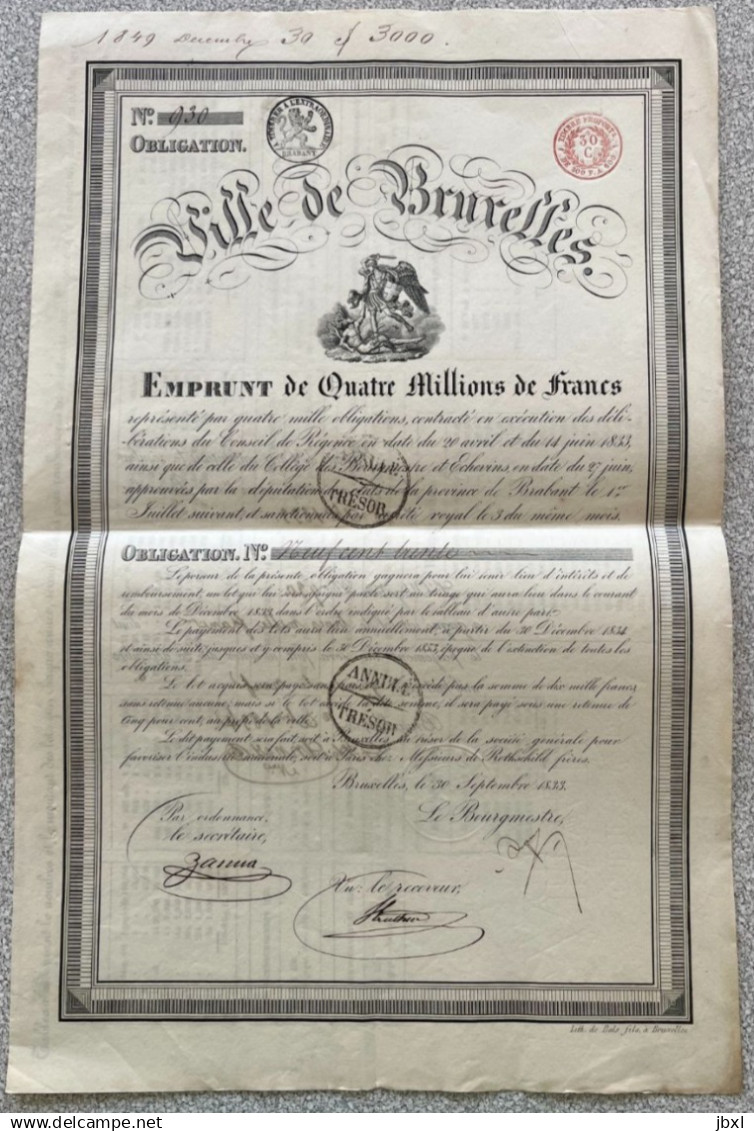 1849 Decembre 30 f 3000.
No. 930
OBLIGATION.
TIMBRE A L'EXTRAORDINAIRE
BRABANT
TIMBRE PROPORT.
50
C.
Ville de Bruxelles.
EMPRUNT de Quatre Millions de Francs
représenté par quatre mille obligations, contracté en exécution des déli-
bérations du Conseil de Régence en date du 20 avril et du 14 juin 1833,
ainsi que de celle du Collège des Bourgmestre et Echevins, en date du 27 juin,
approuvées par la députation des états de la province de Brabant le 1er
Juillet suivant, et sanctionnées par arrêté royal le 3 du même mois.
TRÉSOR
OBLIGATION. No. Neuf cent trente
Le porteur de la présente obligation gagnera pour lui tenir lieu d'intérêts et de
remboursement, un lot qui lui sera assigné par le sort au tirage qui aura lieu dans le courant
du mois de Décembre 1833, dans l'ordre indiqué par le tableau d'autre part.
Le payement des lots aura lieu annuellement, à partir du 30 Décembre 1834
et ainsi de suite, jusques et y compris le 30 Décembre 1853, époque de l'extinction de toutes les
obligations.
Le lot acquis sera payé sans excède pas la somme de dix mille francs,
sans retenue aucune; mais si le lot dite somme, il sera payé sous une retenue de
cinq pour cent, au profit de la ville.
ANNULÉ
TRÉSOR
Le dit payement sera fait, soit à Bruxelles au trésor de la société générale pour
favoriser l'industrie nationale, soit à Paris chez Messieurs de Rothschild frères.
Bruxelles, le 30 Septembre 1833.
Par ordonnance, Le Bourgmestre,
le secrétaire,
Zanna
Vu: le receveur,
Lith. de Bals fils, à Bruxelles.
delcampe.net
jbxl